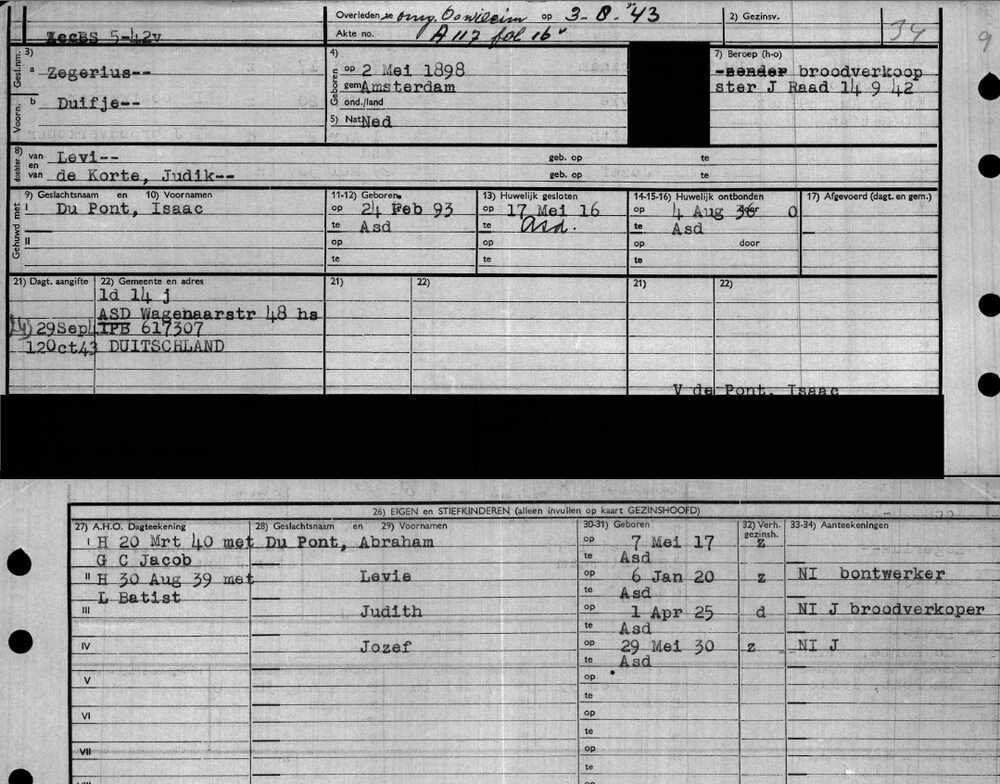 Overleden te omg. Oswiecim op 3-8-'43
2) Gezinsv.
34
9
5-42v
Akte no. A 117 fol 16v
3)
Gesl.nm.
a Zegerius--
Voorn.
b Duifje--
4)
Geboren
op 2 Mei 1898
gem Amsterdam
ond./land
5) Nat Ned
7) Beroep (h-o)
-zender broodverkoop
ster J Raad 14 9 42
8)
dochter
van Levi--
geb. op te
en
van de Korte, Judik--
geb. op te
Gehuwd met
9) Geslachtsnaam en 10) Voornamen
I Du Pont, Isaac
II
11-12) Geboren
op 24 Feb 93
te Asd
op
te
13) Huwelijk gesloten
op 17 Mei 16
te Asd.
op
te
14-15-16) Huwelijk ontbonden
op 4 Aug 36 door O
te Asd
op door
te
17) Afgevoerd (dagt. en gem.)
21) Dagt. aangifte 22) Gemeente en adres
21) 22)
21) 22)
ld 14 j
ASD Wagenaarstr 48 hs
29Sep IPB 617307
12Oct43 DUITSCHLAND
V de Pont, Isaac
26) EIGEN en STIEFKINDEREN (alleen invullen op kaart GEZINSHOOFD)
27) A.H.O. Dagteekening
28) Geslachtsnaam en 29) Voornamen
30-31) Geboren
32) Verh. gezinsh.
33-34) Aanteekeningen
I H 20 Mrt 40 met Du Pont, Abraham op 7 Mei 17 z
G C Jacob te Asd
II H 30 Aug 39 met Levie op 6 Jan 20 z NI bontwerker
L Batist te Asd
III Judith op 1 Apr 25 d NI J broodverkoper
te Asd
IV Jozef op 29 Mei 30 z NI J
te Asd
V op
te
VI op
te
VII op
te